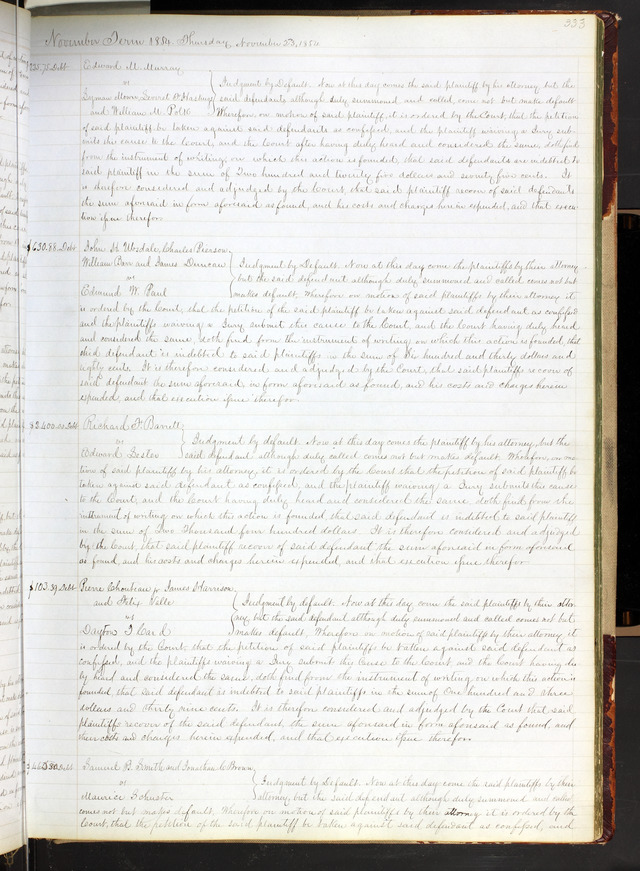 333
November Term 1854. Thursday, November 23, 1854
$225.75 Debt Edward M. Murray,
vs
Judgment by Default. Now at this day comes the said plaintiff by his attorney but the
Lyman Mowr, Hastings said defendants although duly summoned and called, come not but make default.
and William M. Polk Wherefore on motion of said plaintiff, it is ordered by the Court, that the petition
of said plaintiff be taken against said defendants as confessed, and the plaintiff waiving a Jury sub-
mits this cause to the Court, and the Court after having duly heard and considered the same, doth find
from the instrument of writing on which this action is founded, that said defendants are indebted to
said plaintiff in the sum of Two hundred and twenty five dollars and seventy five cents. It
is therefore considered and adjudged by the Court, that said plaintiff recover of said defendants
the sum aforesaid in form aforesaid as found, and his costs and charges herein expended, and that execu-
tion issue therefor.
$630.88 Debt John H. Charles Pierson
William Barr and James Duncan Judgment by Default. Now at this day come the plaintiffs by their attorney
vs but the said defendant although duly summoned and called comes not but
Edmund W. Paul makes default. Wherefore on motion of said plaintiffs by their attorney it
is ordered by the Court, that the petition of the said plaintiff be taken against said defendant as confessed
and the plaintiffs waiving a Jury submit this cause to the Court, and the Court having duly heard
and considered the same, doth find from the instrument of writing on which this action is founded, that
said defendant is indebted to said plaintiffs in the sum of Six hundred and thirty dollars and
eighty cents. It is therefore considered and adjudged by the Court, that said plaintiffs recover of
said defendant the sum aforesaid, in form aforesaid as found, and his costs and charges herein
expended, and that execution issue therefor.
$2.400.00 Debt Richard F. Barrett
vs Judgment by default. Now at this day comes the plaintiff by his attorney, but the
Edward said defendant although duly called comes not but makes default. Wherefore, on mo-
tion of said plaintiff by his attorney, it is ordered by the Court that the petition of said plaintiff be
taken against said defendant as confessed, and the plaintiff waiving a Jury submits this cause
to the Court, and the Court having duly heard and considered the same, doth find from the
instrument of writing on which this action is founded that said defendant is indebted to said plaintiff
in the sum of Two Thousand four hundred dollars. It is therefore considered and adjudged
by the Court, that said plaintiff recover of said defendant the sum aforesaid in form aforesaid
as found, and his costs and charges herein expended, and that execution issue therefor.
$103.39 Debt Pierre Chouteau Jr James Harrison
and Felix Valle Judgment by default. Now at this day come the said plaintiffs by their attor-
vs ney, but the said defendant although duly summoned and called comes not but
Dayton Card makes default. Wherefore on motion of said plaintiffs by their attorney, it
is ordered by the Court, that the petition of said plaintiffs be taken against said defendant as
confessed, and the plaintiffs waiving a Jury submit this cause to the Court, and the Court having du-
ly heard and considered the same, doth find from the instrument of writing on which this action is
founded, that said defendant is indebted to said plaintiffs in the sum of One hundred and three
dollars and thirty nine cents. It is therefore considered and adjudged by the Court that, said
plaintiffs recover of the said defendant, the sum aforesaid in form aforesaid as found, and
their costs and charges herein expended, and that execution issue therefor.
Debt Samuel B. Smith and Jonathan C Brown,
vs Judgment by Default. Now at this day come the said plaintiffs by their
Maurice Schuster attorney, but the said defendant although duly summoned and called
comes not but makes default. Wherefore on motion of said plaintiffs by their attorney it is ordered by the
Court, that the petition of the said plaintiff be taken against said defendant as confessed, and